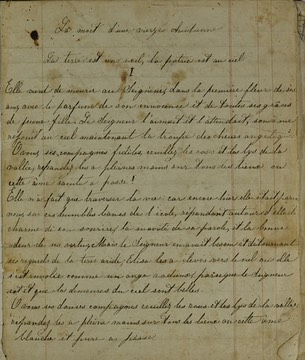 La mort d'une vierge chrétienne
La terre est un exil, la patrie est au ciel
I
Elle vient de mourir au Seigneur dans la première fleur de ses
ans avec le parfum de son innocence et de toutes ses grâces
de jeune fille. Le Seigneur l'aimait et l'attendait, son âme
réjouit au ciel maintenant la troupe des chœurs angéliques
O vous ses compagnes fidèles cueillez les roses et les lys de la
vallée, répandez les à pleines mains sur tous les lieux où
cette âme sainte a passé!
Elle n'a fait que traverser la vie car encore hier elle était parmi
nous sur ces humbles bancs de l'école, répandant autour d'elle le
charme de son sourire, la suavité de sa parole, et la bonne
odeur de ses vertus. Mais le Seigneur en avait besoin et détournant
ses regards de la terre il les a élevés vers le ciel où elle
s'est envolée comme un ange radieux parce que le Seigneur
est et que les demeures du ciel sont belles.
O vous ses douces compagnes recueillez les roses et les lys de la vallée
répandez les à pleines mains sur tous les lieux où cette âme
blanche et pure a passé